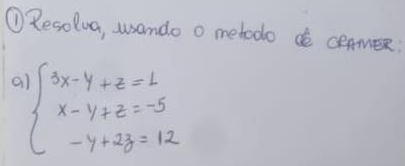 ① Resolva, usando o metodo de CRAMER:
a) { 3x - y + z = 1
x - y + z = -5
- y + 2z = 12